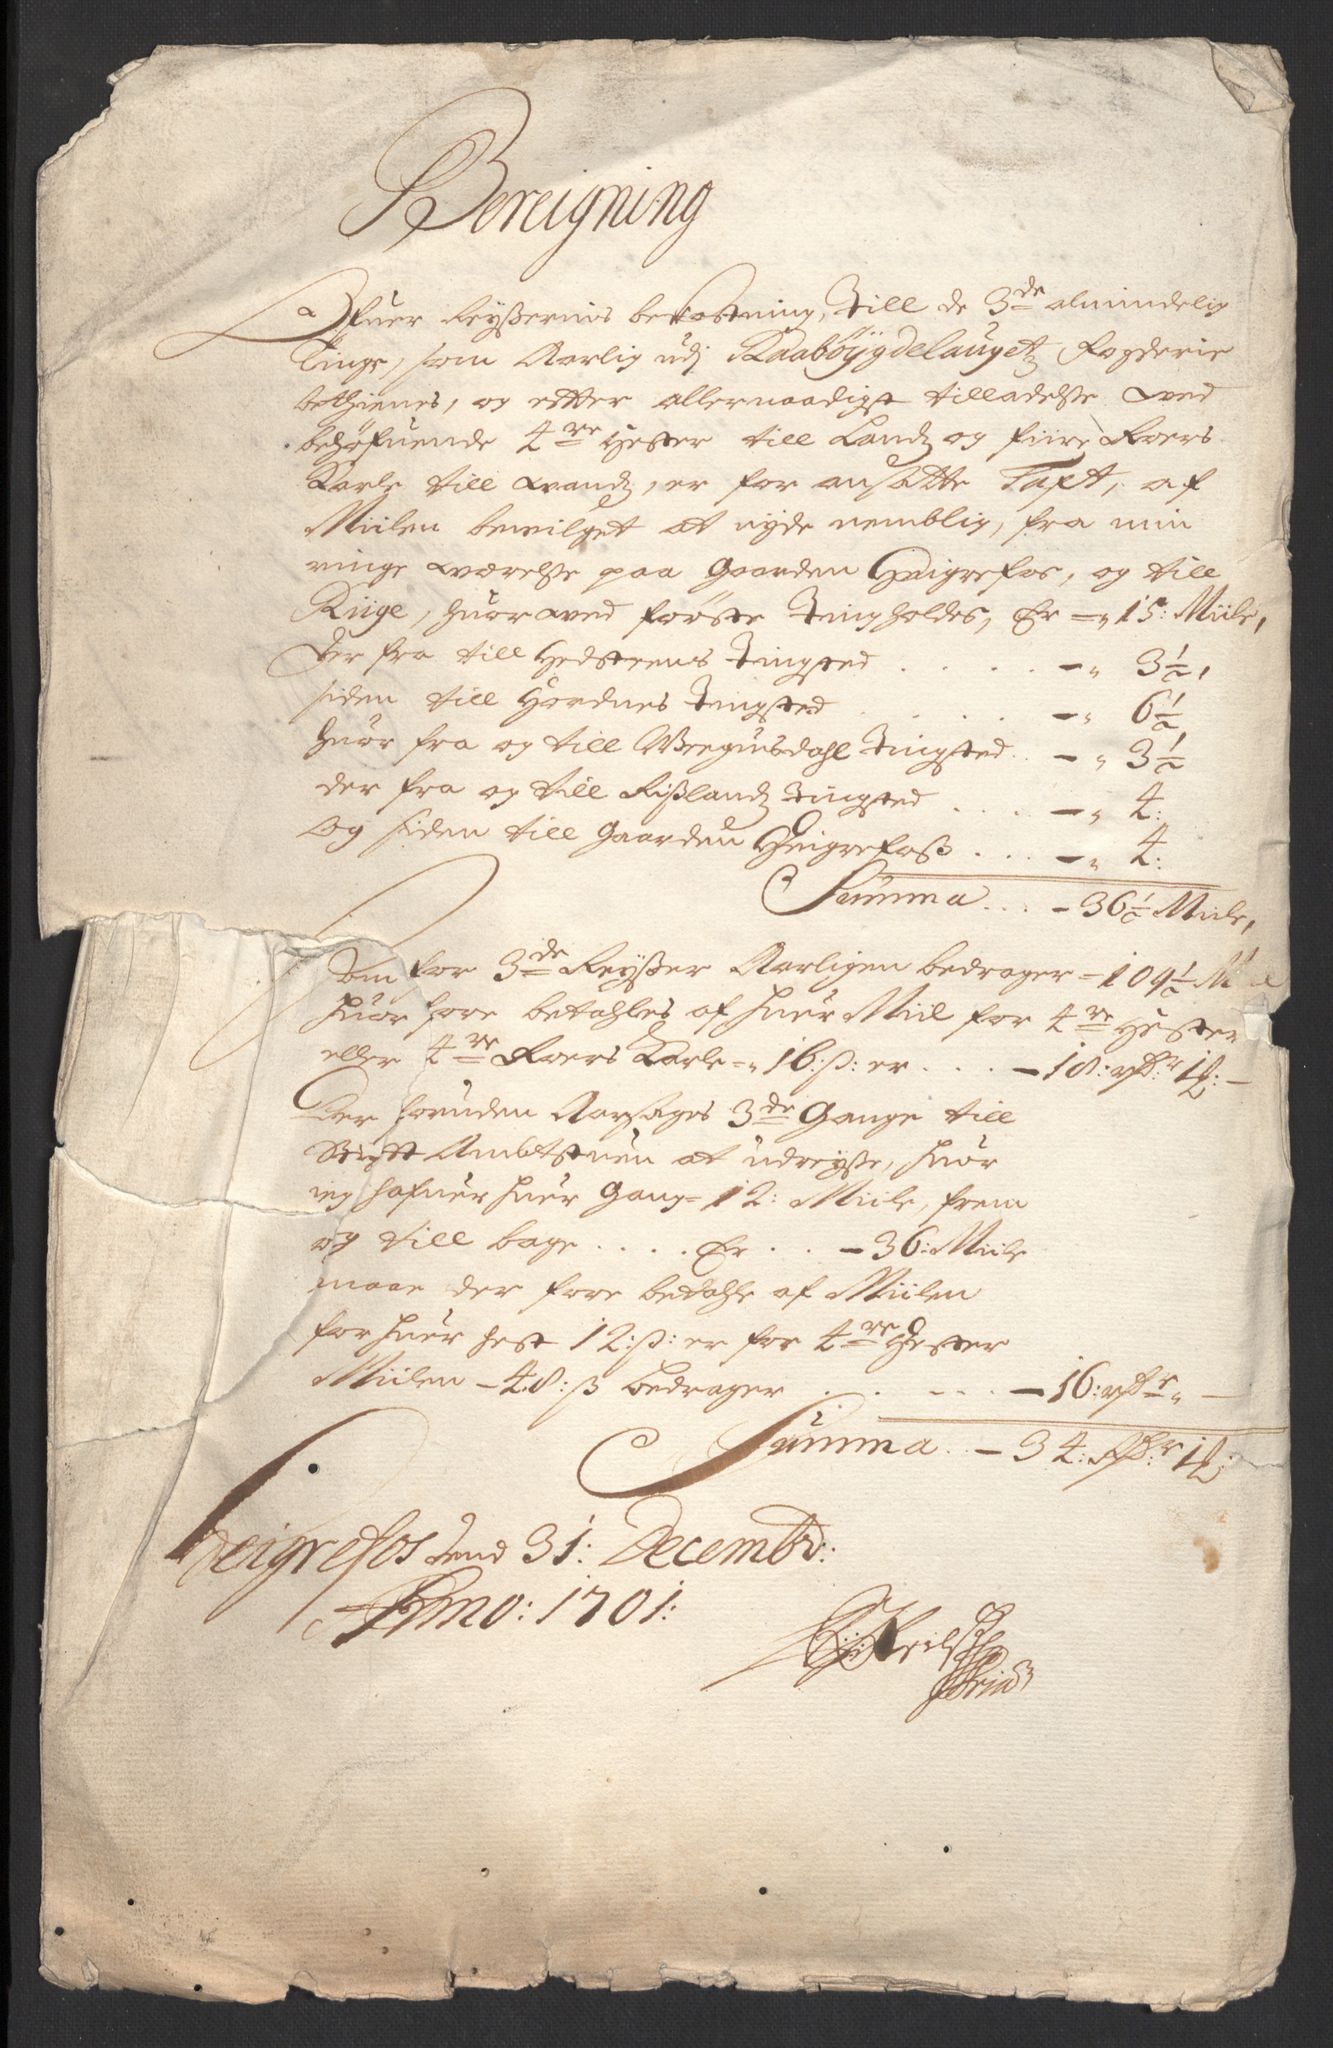 Bereigning
Ofuer Reyßernis bekostning, till de 3de almindelig
Tinge, som Aarlig udj Raabøygdelaugetz fogderie
bethienes, og efter allernaadigst tilladelsse med
behøfuende 4re hester till Landz og fiire Roers
Karle till vandz, er for ansatte Taxt, af
Miilen bevilget at nyde nemblig, fra min
ringe værelsse paa Gaarden Heigrefos, og till
Riige, huor ved første Tingholdes, Er =" 15: Miile,
der fra till Hedsteens Tingsted . . . . -" 3½,
siden till Hordnes Tingsted . . . . -" 6½
huor fra og till Weegusdahl Tingsted . . -" 3½
der fra og till Rißlandz Tingsted . . . -" 4:
Og siden till Gaarden Heigrefoß . . . -" 4:
Summa . . . - 36½ Miile,
som for 3de Reyßer Aarligen bedrager = 109½ M
huor fore betahles af huer Miil for 4re Hester
eller 4re Roers Karle =" 16: ß: er . . . - 18: rdr 1
Der foruden Aarsages 3de Gange till
Stigt Ambtstuen at udreyße, huor
ieg hafuer huer Gang = 12: Miile, frem
og till bage . . . . Er . . - 36: Miile
maae der fore betahle af Miilen
for huer hest 12: ß: er for 4re Hester
Miilen - 48: ß bedrager . . - - . . - 16: rdr " -
Summa . . - 34: Rdr 1
Heigrefos dend 31: Decembr:
Anno: 1701: